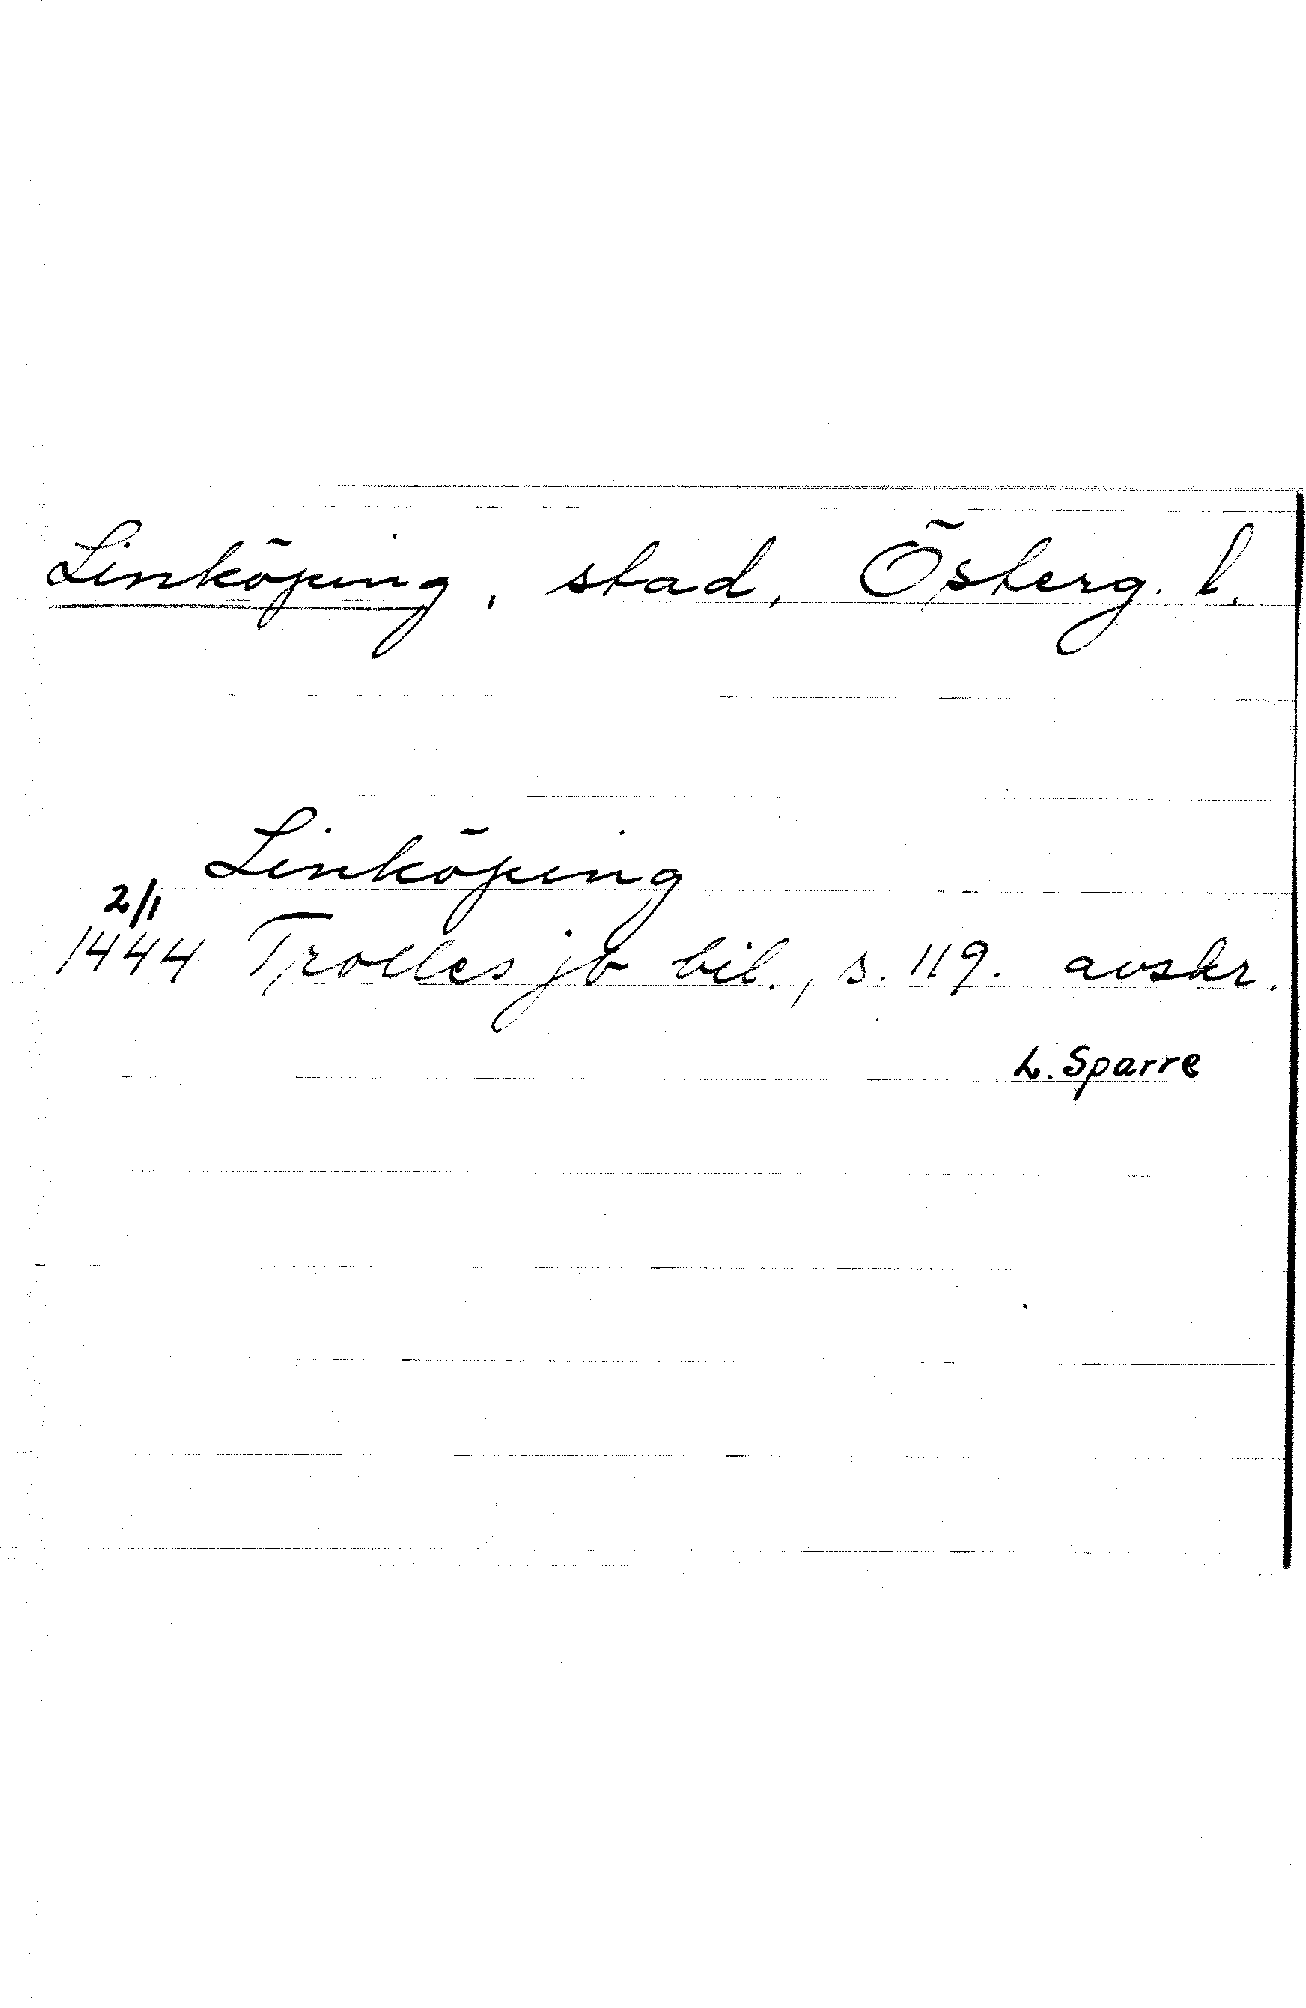 Linköping, stad, Österg. l.
Linköping
2/1
1444 Trolles jb bil., s. 119. avskr.
L. Sparre